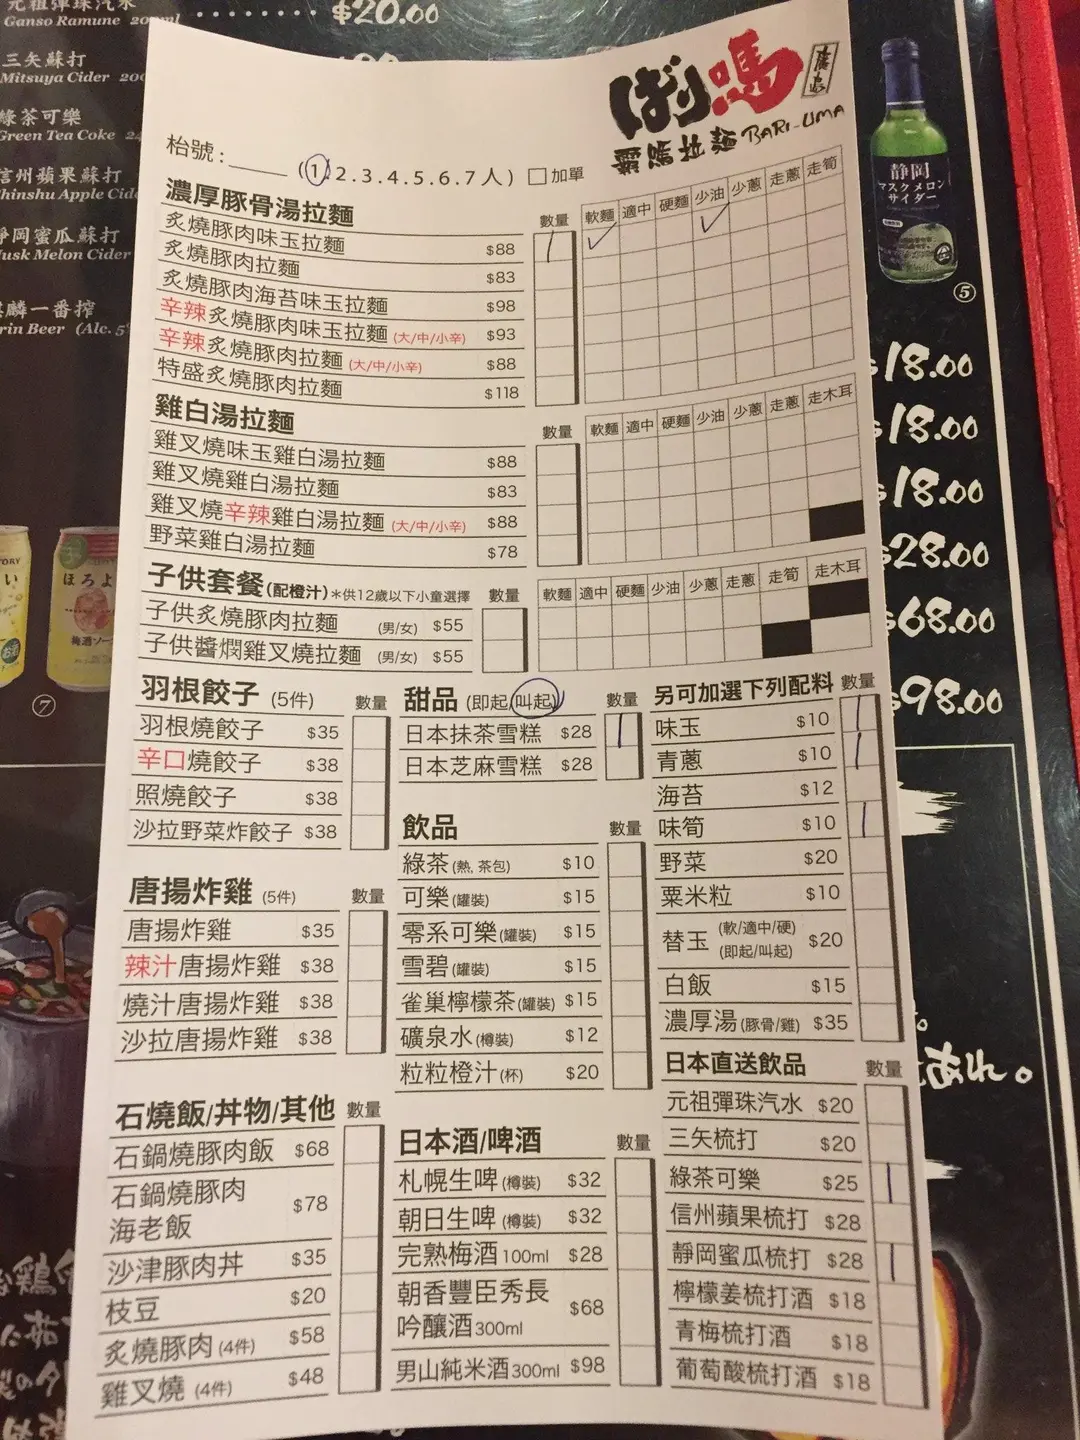 元祖彈珠汽水
Ganso Ramune 200ml
$20.00
三矢蘇打
Mitsuya Cider 200
綠茶可樂
Green Tea Coke 24
信州蘋果蘇打
hinshu Apple Cide
靜岡蜜瓜蘇打
usk Melon Cider
麒麟一番搾
irin Beer (Alc. 5%
⑦
静岡
マスクメロン
サイダー
⑤
$18.00
$18.00
$18.00
$28.00
$68.00
$98.00
ばり嗎
霸嗎拉麵 BARI-UMA
枱號:______ (1.2.3.4.5.6.7人) □加單
濃厚豚骨湯拉麵 數量 軟麵 適中 硬麵 少油 少蔥 走蔥 走筍
炙燒豚肉味玉拉麵 $88
炙燒豚肉拉麵 $83
炙燒豚肉海苔味玉拉麵 $98
辛辣炙燒豚肉味玉拉麵 (大/中/小辛) $93
辛辣炙燒豚肉拉麵 (大/中/小辛) $88
特盛炙燒豚肉拉麵 $118
雞白湯拉麵 數量 軟麵 適中 硬麵 少油 少蔥 走蔥 走木耳
雞叉燒味玉雞白湯拉麵 $88
雞叉燒雞白湯拉麵 $83
雞叉燒辛辣雞白湯拉麵 (大/中/小辛) $88
野菜雞白湯拉麵 $78
子供套餐(配橙汁)*供12歲以下小童選擇 數量 軟麵 適中 硬麵 少油 少蔥 走蔥 走筍 走木耳
子供炙燒豚肉拉麵 (男/女) $55
子供醬燜雞叉燒拉麵 (男/女) $55
羽根餃子 (5件) 數量
羽根燒餃子 $35
辛口燒餃子 $38
照燒餃子 $38
沙拉野菜炸餃子 $38
唐揚炸雞 (5件) 數量
唐揚炸雞 $35
辣汁唐揚炸雞 $38
燒汁唐揚炸雞 $38
沙拉唐揚炸雞 $38
石燒飯/丼物/其他 數量
石鍋燒豚肉飯 $68
石鍋燒豚肉
海老飯 $78
沙津豚肉丼 $35
枝豆 $20
炙燒豚肉 (4件) $58
雞叉燒 (4件) $48
甜品 (即起/叫起) 數量
日本抹茶雪糕 $28
日本芝麻雪糕 $28
飲品 數量
綠茶(熱, 茶包) $10
可樂(罐裝) $15
零系可樂(罐裝) $15
雪碧(罐裝) $15
雀巢檸檬茶(罐裝) $15
礦泉水(樽裝) $12
粒粒橙汁(杯) $20
日本酒/啤酒 數量
札幌生啤(樽裝) $32
朝日生啤(樽裝) $32
完熟梅酒100ml $28
朝香豐臣秀長
吟釀酒300ml $68
男山純米酒300ml $98
另可加選下列配料 數量
味玉 $10
青蔥 $10
海苔 $12
味筍 $10
野菜 $20
粟米粒 $10
替玉 (軟/適中/硬) (即起/叫起) $20
白飯 $15
濃厚湯(豚骨/雞) $35
日本直送飲品 數量
元祖彈珠汽水 $20
三矢梳打 $20
綠茶可樂 $25
信州蘋果梳打 $28
靜岡蜜瓜梳打 $28
檸檬姜梳打酒 $18
青梅梳打酒 $18
葡萄酸梳打酒 $18